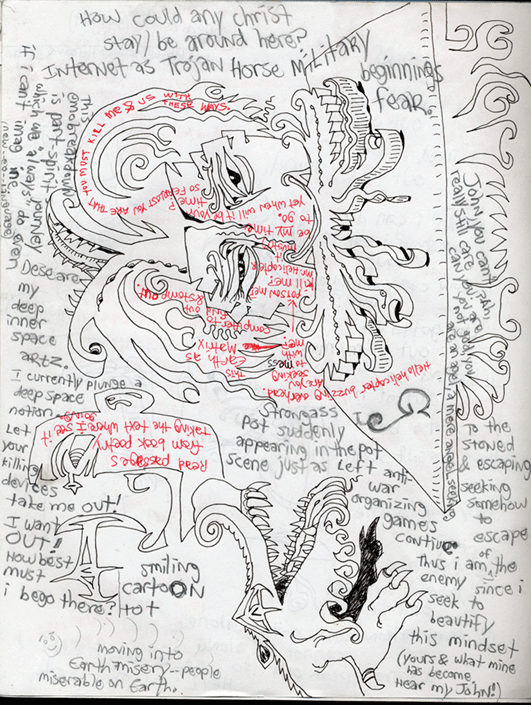 How could any christ
stay/be around here?
Internet as Trojan Horse Military
beginnings
fear.
THAT YOU MUST KILL ME & US WITH
THESE WAYS.
SO FEARLESS YOU ARE
yet when will it be your
time?
to go.
be my time
it
mr. helicopter
kill me?
poison me?
& stomp out
computer to
find out
Earth as
Matrix
this
me?
with
to mess
seeking
Are you
Hello helicopter buzzing overhead.
This
emobreakdown
is part-spirit
journey
which us "always" do even
if i can't imag in e
Dese are
my
deep
inner
space
artz.
I currently plunge a
deep space
notion.
Let
your
killing
devices
take me out!
I want
OUT!
How best
must
i bego there?
Read passages
from book poetry
taking the text where I see it
going.
Strongass
Pot suddenly
appearing in the pot
scene just as Left anti-
war
organizing
games
continue.
John you can
really still care
To the
stoned
& escaping
seeking
somehow
to
escape
of
Thus i am the
enemy since i
seek to
beautify
this mindset
(yours & what mine
has become
Hear my John!)
smiling
cartoon
tot
moving into
Earth misery--people
miserable on Earth.